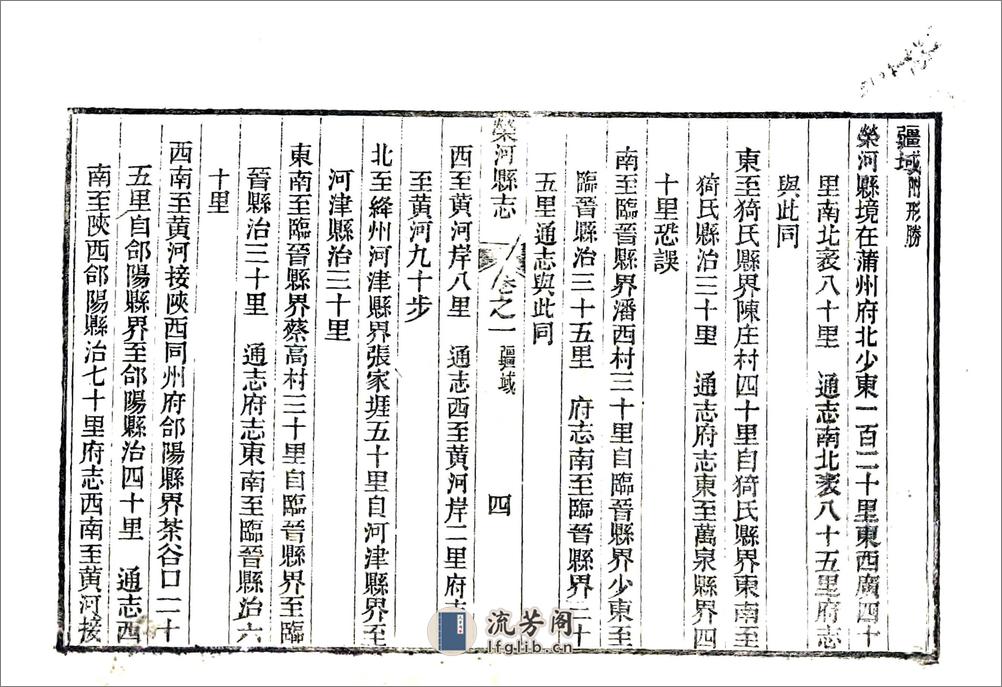 疆域附形勝
榮河縣境在蒲州府北少東一百二十里東西廣四十
里南北袤八十里　通志南北袤八十五里府志
與此同
東至猗氏縣界陳庄村四十里自猗氏縣界東南至
猗氏縣治三十里　通志府志東至萬泉縣界四
十里恐誤
南至臨晉縣界潘西村三十里自臨晉縣界少東至
臨晉縣治三十五里　府志南至臨晉縣界二十
五里通志與此同
榮河縣志　卷之一　疆域　四
西至黃河岸八里　通志西至黃河岸二里府志
至黃河九十步
北至絳州河津縣界張家堐五十里自河津縣界至
河津縣治三十里
東南至臨晉縣界蔡高村三十里自臨晉縣界至臨
晉縣治三十里　通志府志東南至臨晉縣治六
十里
西南至黃河接陝西同州府郃陽縣界茶谷口二十
五里自郃陽縣界至郃陽縣治四十里　通志西
南至陝西郃陽縣治七十里府志西南至黃河接
流芳阁
lfglib.cn